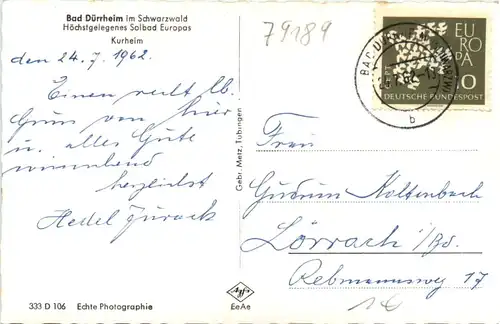 Bad Dürrheim im Schwarzwald
Höchstgelegenes Solbad Europas
Kurheim
79189
den 24.7.1962.
Einen recht lb.
Gruss von hier
u. alles Gute
wünschend
herzlichst
Hedel
Gebr. Metz, Tübingen
EUROPA
CEPT
DEUTSCHE BUNDESPOST
10
b
Frau
Gudrun Koltenbach
Lörrach/Bd.
Rebmannsweg 17
1€
333 D 106 Echte Photographie
Agfa
EeAe